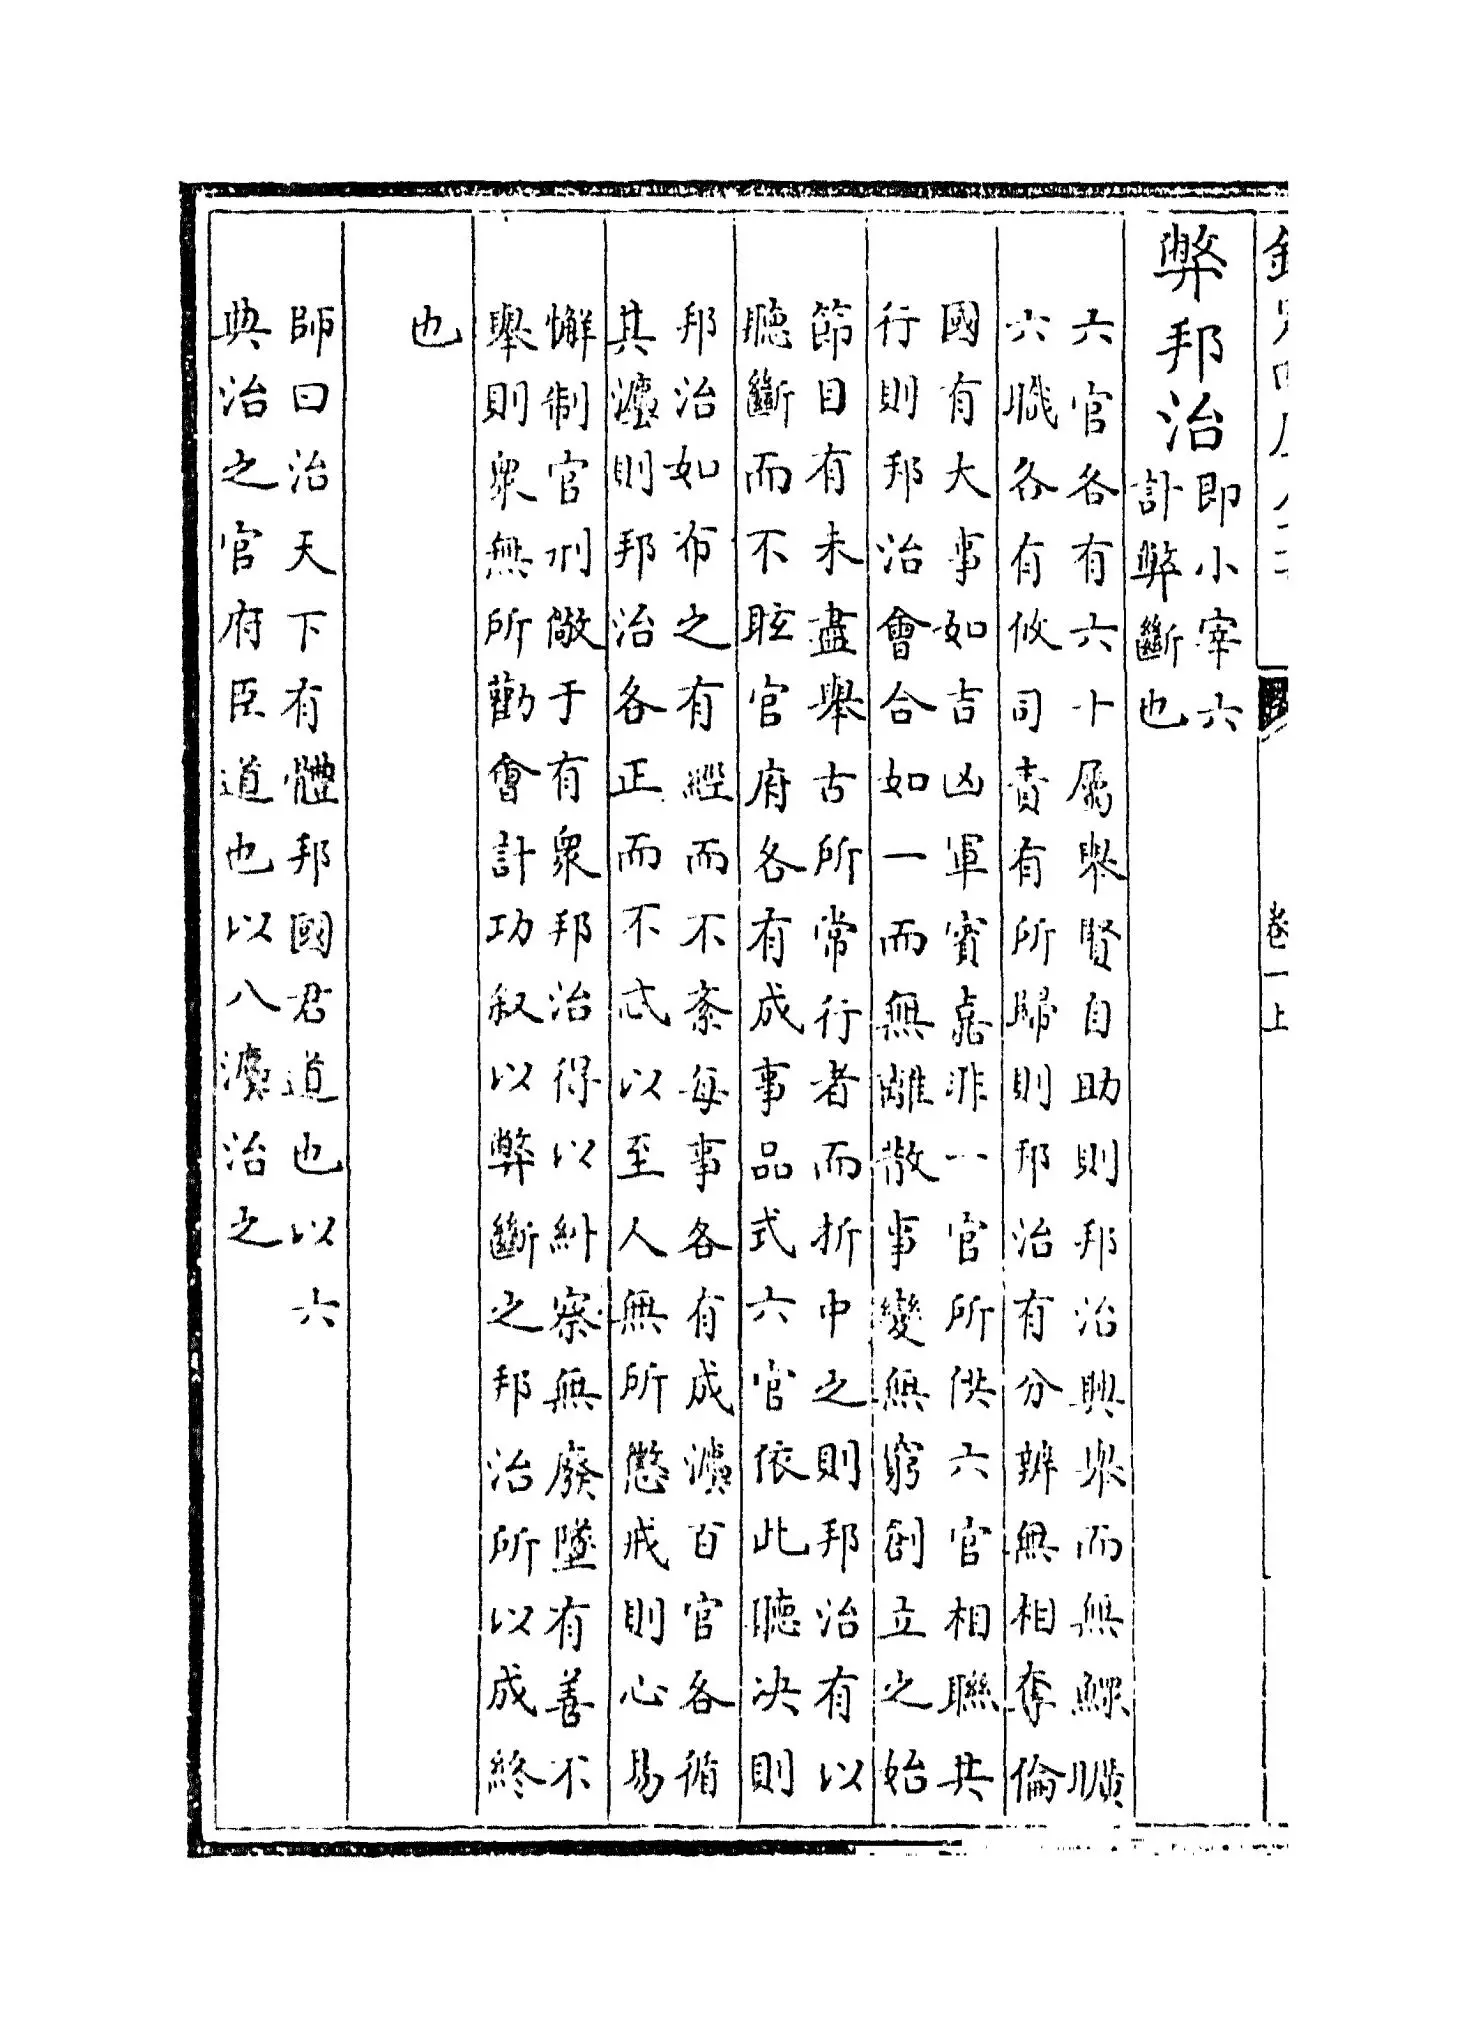 卷一上
弊邦治
即小宰六
計弊斷也
六官各有六十屬舉賢自助則邦治興舉而無鰥曠
六職各有攸司責有所歸則邦治有分辨無相奪倫
國有大事如吉凶軍賓嘉非一官所供六官相聯共
行則邦治會合如一而無離散事變無窮創立之始
節目有未盡舉古所常行者而折中之則邦治有以
聽斷而不眩官府各有成事品式六官依此聽决則
邦治如布之有經而不紊每事各有成灋百官各循
其灋則邦治各正而不忒以至人無所懲戒則心易
懈制官刑儆于有衆邦治得以糾察無廢墜有善不
舉則衆無所勸會計功叙以弊斷之邦治所以成終
也
師曰治天下有體邦國君道也以六
典治之官府臣道也以八灋治之